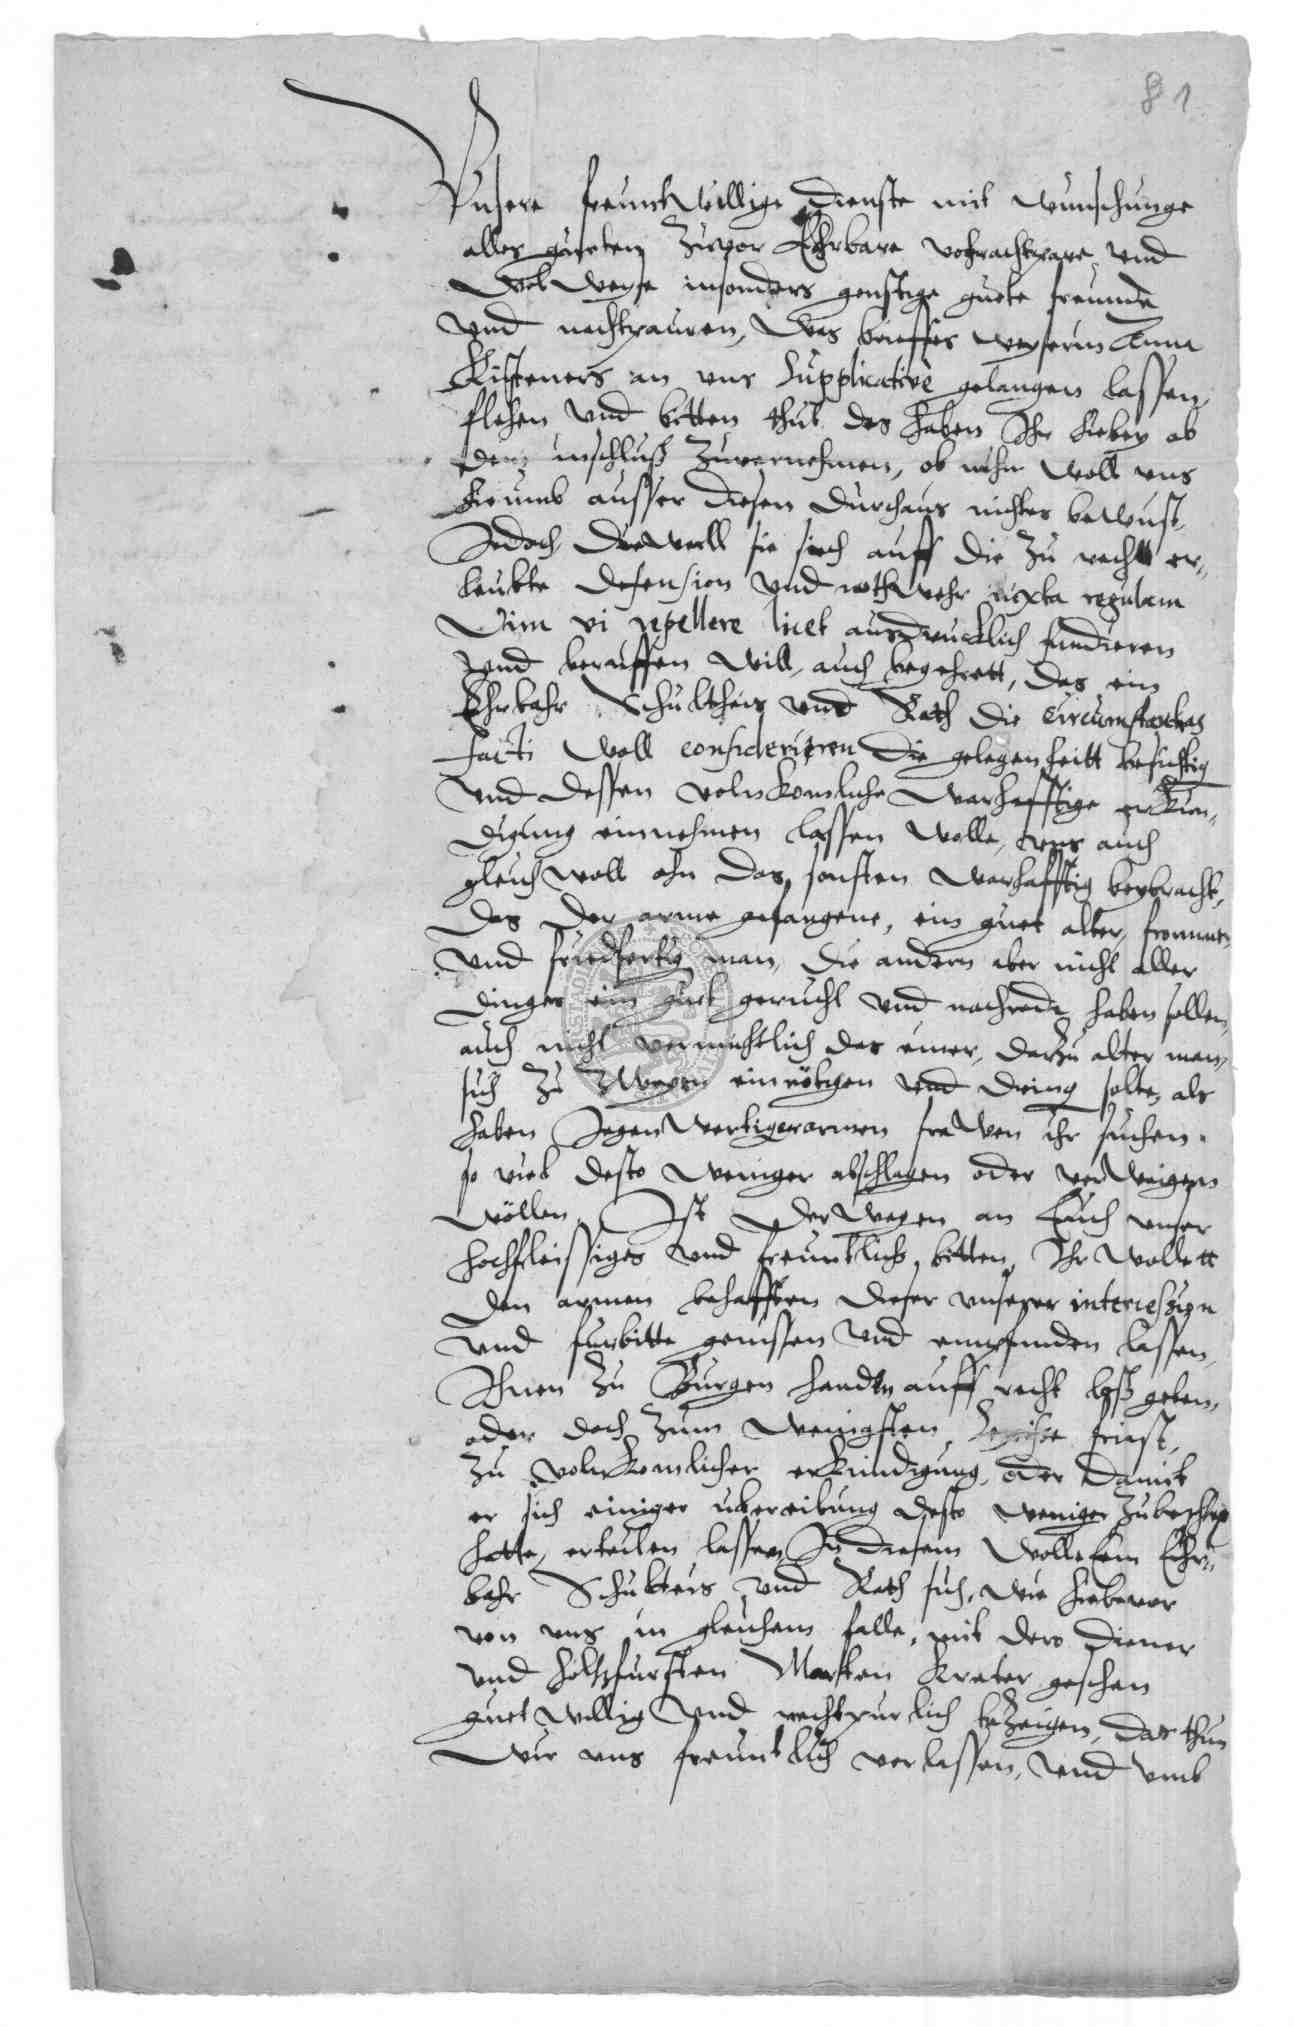 81
Vnsere freuntwillige dienste mit wunschunge
alles gueten zuvor Ehrbare vohrachtpare vnd
wolweise insonders gonstige guete freunde
vnd nachtpauren, Was brieffes weyserin Anna
Kisteners an vns supplicativè gelangen lassen,
flehen vnd bitten thut das haben Ihr hiebey ab
dem inschluß zuvernehmen, ob nuhn woll vns
hieumb ausser diesen durchaus nichtes bewust,
Jedoch dweill sie sich auff die zu recht er„
leubte defension vnd nothwehr iuxta regulam
Vim vi repellere licet ausdrucklich fundieren
vnd beruffen will, auch begehrett, das ein
Ehrbahr Schultheis vnd Rath die circumstantias
facti woll considerieren die gelegenheitt besichtig
vnd dessen volnkomliche warhafftige erkun„
digung einnehmen lassen wolle, vns auch
gleichwoll ohn das, sonsten warhafftig beybracht,
das der arme gefangene, ein guet alter, frommer
vnd friedfertig man, die andern aber nicht aller
dinges ein guet gerucht vnd nachrede haben sollen,
auch nicht vermuhtlich das einer, darzu alter man,
sich zu zweyen einnötigen vnd dring solte, als
haben Jegenwertiger armen frawen ihr suchen
so viel desto weniger abschlagen oder verweigern
wöllen, Ist derwegen an Euch vnser
hochfleissiges vnd freuntlichs bitten, Ihr wollett
den armen behafften dieser vnserer intercession
vnd furbitte geniessen vnd empfinden lassen,
Ihnen zu Burgen handen auff recht loß geben,
oder doch zum wenigsten friest,
zu volnkomlicher erkundigung, oder damit
er sich einiger ubereilung desto weniger zubeschwe
hette, erteilen lassen, In diesem wolle Ein Ehr„
bahr Schulteis vnd Rath sich, wie hiebevor
von vns in gleichem falle, mit dero diener
vnd holtzfursten Marten Krater geschen
guetwillig vnd nachtpurlich bezeigen, Das thun
wir vns freuntlich verlassen, vnd vmb